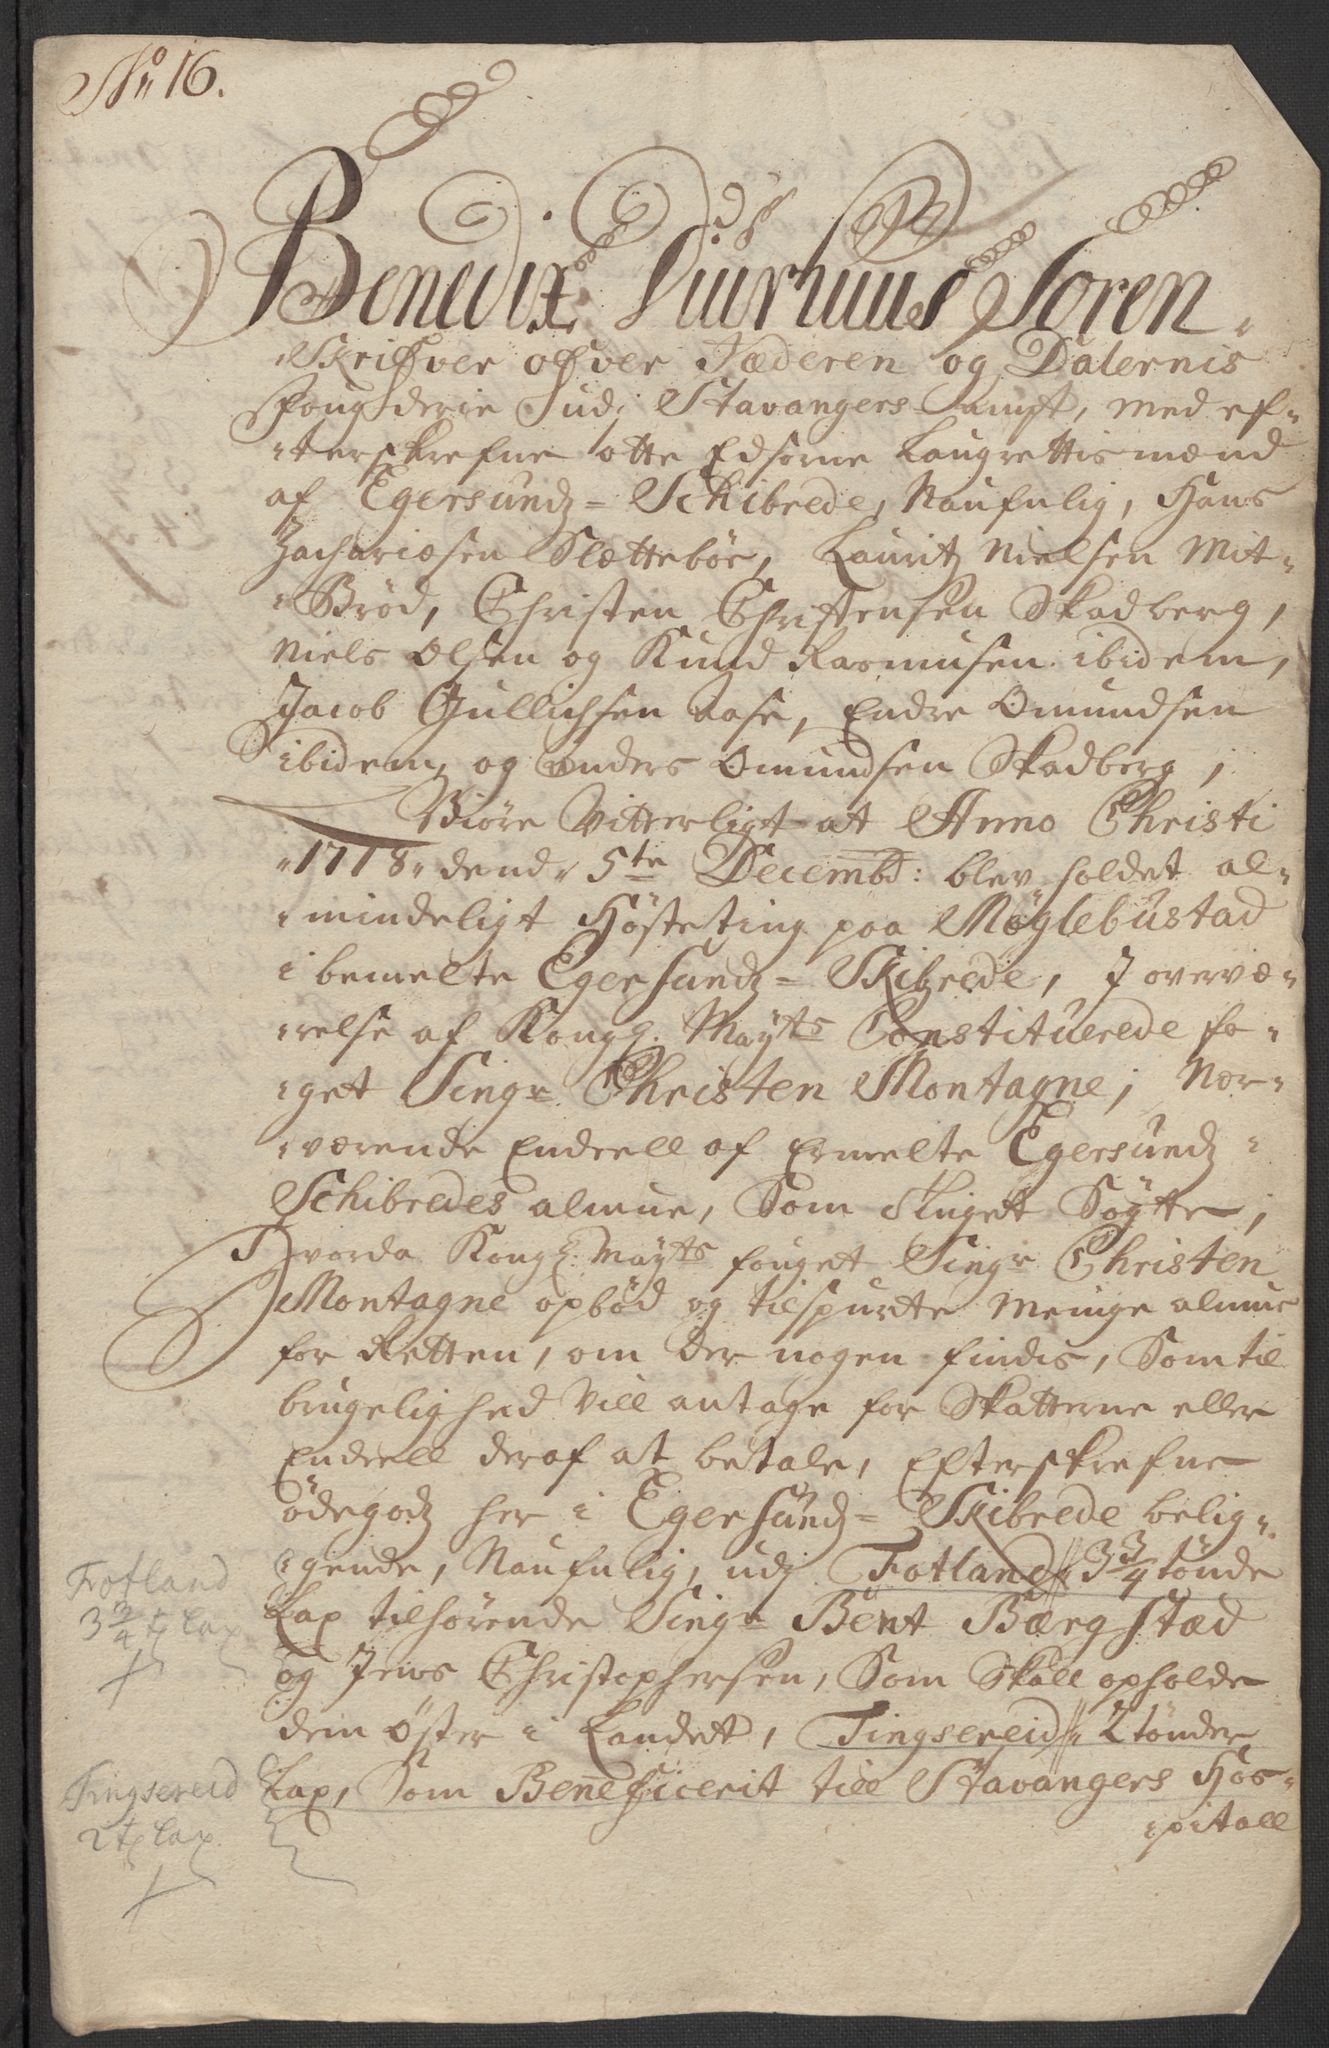 No 16.
Benedix Siurhuus Soren-
Skrifver ofver Jæderen og Dalernis
fougderie Udj Stavangers Ampt, med ef-
terskrefne otte Edsorne Laugrettismænd
af Egersundz- Schibrede, Naufnlig, Hans
Zachariæsen Slettebøe, Lauritz Nielsen Mit-
Brød, Christen Christensen Skadberg,
Niels Olsen og Knud Rasmusen ibidem,
Jacob Gullichsen Aase, Endre Omundsen
ibidem, og Anders Omundsen Skadberg,
Giøre Vitterligt at Anno Christi
1718 dend 5te Decembr: blev holdet al-
mindeligt Høsteting paa Møglebustad
i bemelte Egersundz- Skibrede, J overvæ-
relse af Kongl. Mayts Constituerede fo-
get Singr Christen Montagne, Nær-
værende Endeell af Ermelte Egersundz
Schibredes almue, Som tinget Søgte,
Hvorda Kongl. Mayts fouget Singr Christen
Montagne opbød og tilspurte Meinge almue
for Retten, om der nogen findis, Som til
brugelighed Vill antage for Skatterne eller
Endeell deraf at betale, Efterskrefne
ødegodz her i Egersundz- Skibrede belig-
gende, Naufnlig, udj Fotland 3 3/4 tønde
Lax tilhørende Singr Bent Bærgstæd
og Jens Christophersen, Som Skall opholde
dem Øster i Landet, Tingsereid 2 tønder
Lax, Som Beneficerit till Stavangers Hos-
pitall
Fotland
3 3/4 t Lax
Tingsereid
2 t Lax